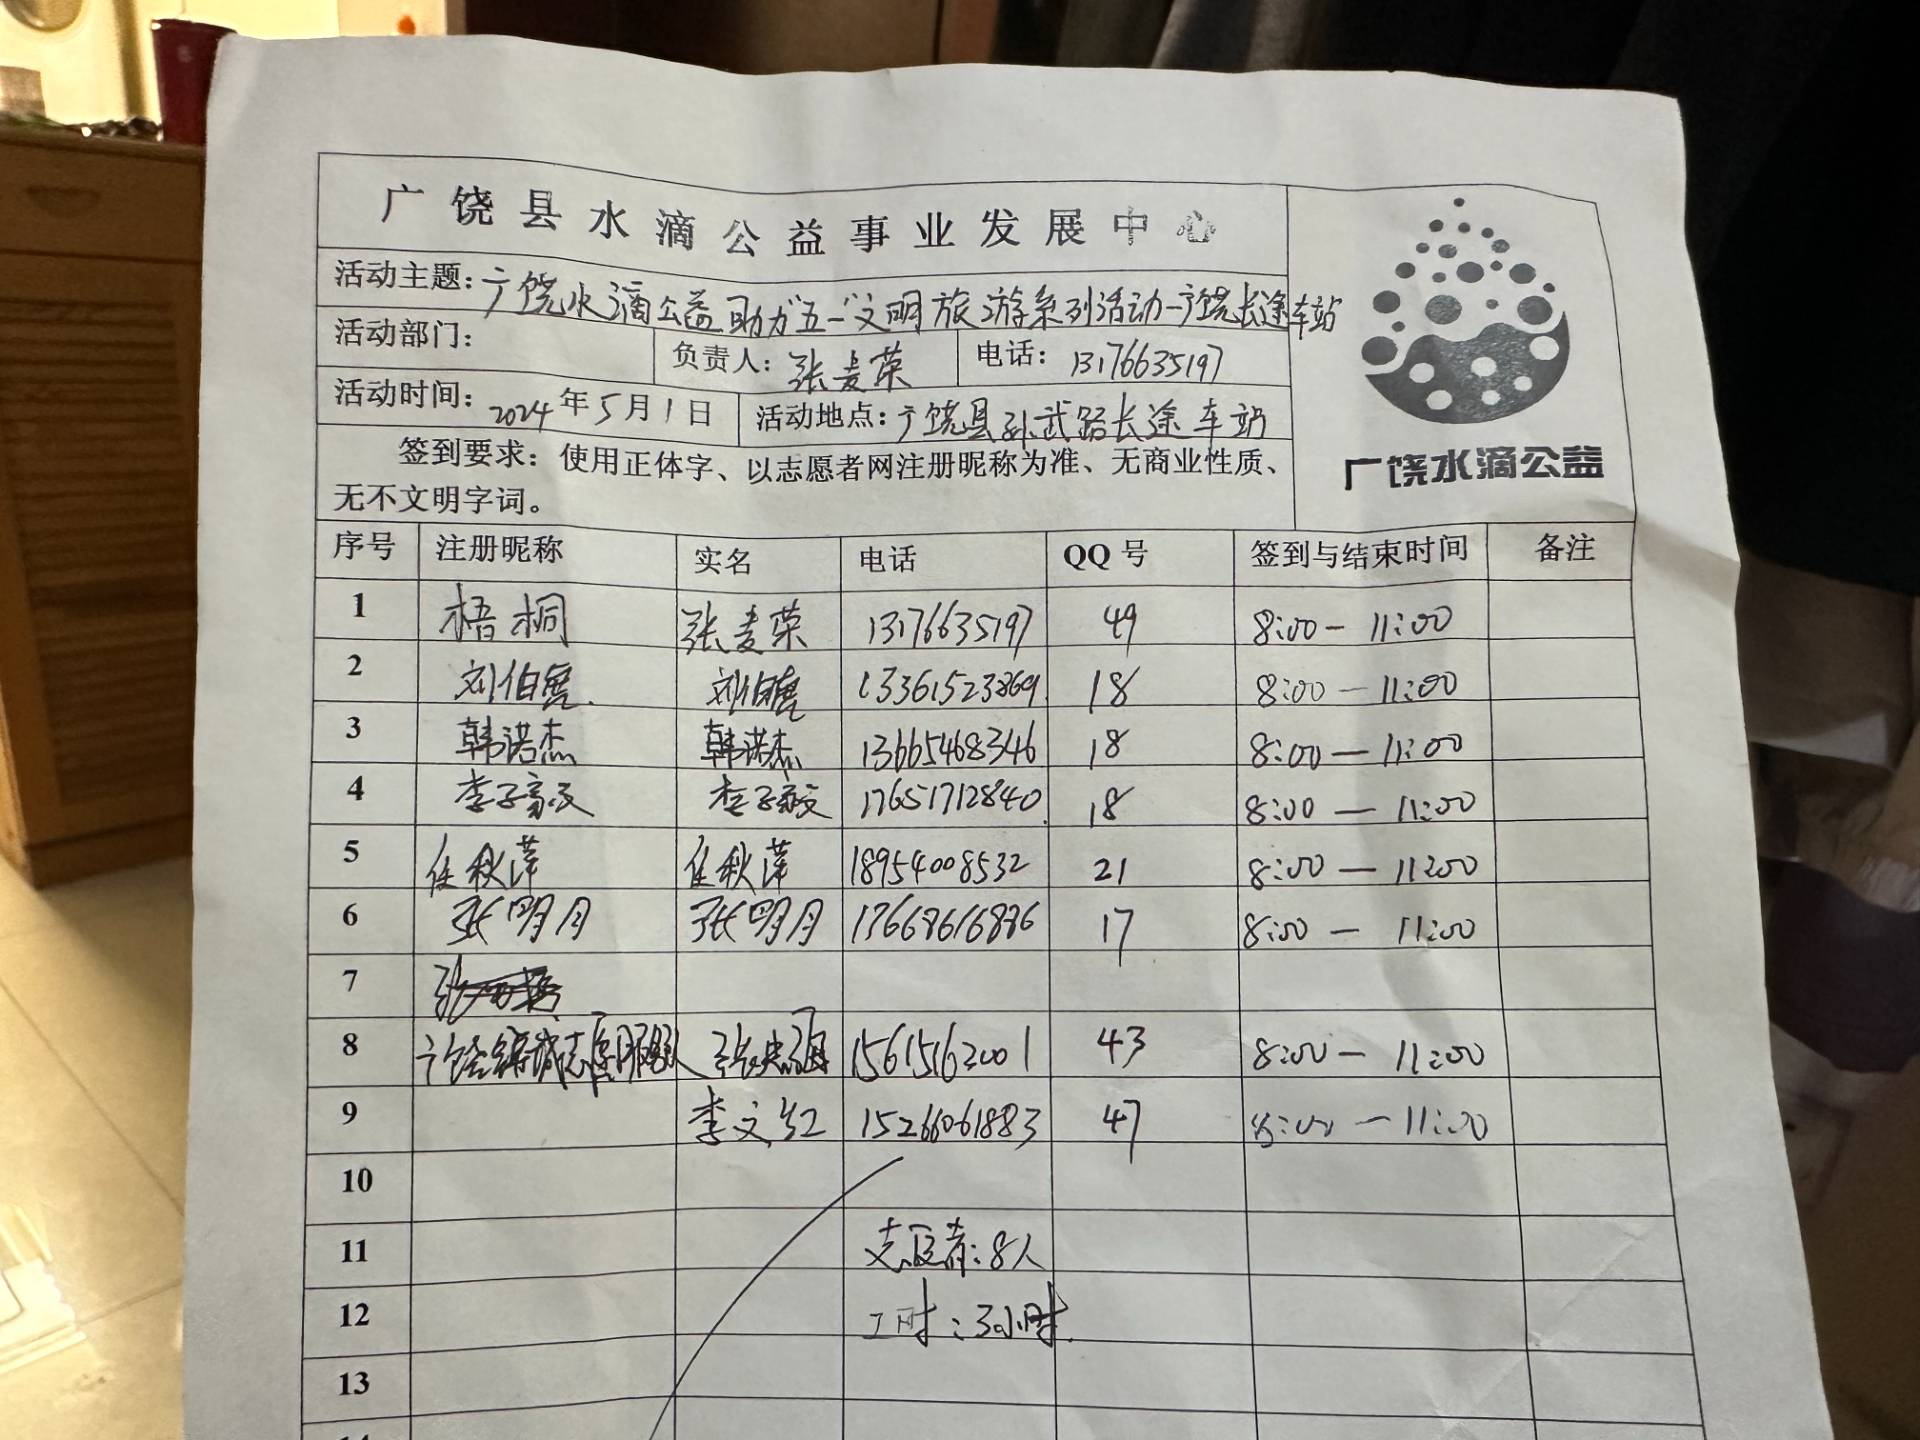 广饶县水滴公益事业发展中心
活动主题：广饶水滴公益助力“五一”文明旅游系列活动-广饶长途车站
活动部门：
负责人：张麦荣
电话：13176635197
活动时间：2024年5月1日
活动地点：广饶县孙武路长途车站
签到要求：使用正体字、以志愿者网注册昵称为准、无商业性质、
无不文明字词。
广饶水滴公益
序号 注册昵称 实名 电话 QQ号 签到与结束时间 备注
1 梧桐 张麦荣 13176635197 49 8:00-11:00
2 刘伯 刘伯 13361523869 18 8:00-11:00
3 韩诺杰 韩诺杰 13665468346 18 8:00-11:00
4 李子 李子 17651712840 18 8:00-11:00
5 任秋萍 任秋萍 18954008532 21 8:00-11:00
6 张明月 张明月 17668616886 17 8:00-11:00
7 张
8 广饶 志愿服务队 张 15615162001 43 8:00-11:00
9 李文红 15266061883 47 8:00-11:00
10
11 志愿者：8人
12 工时：3小时
13